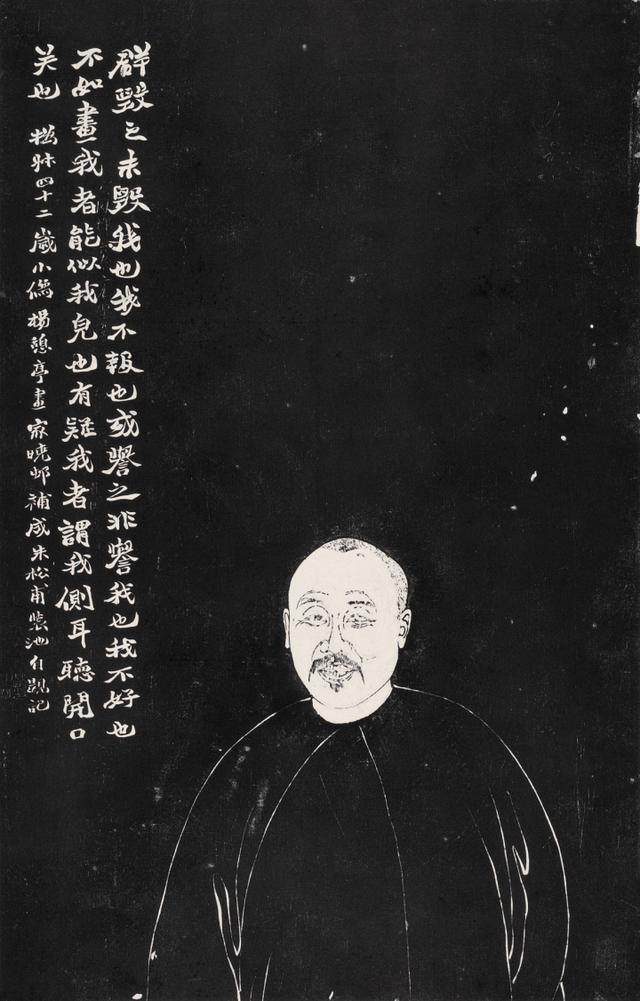 群毀之未毀我也我不報也或譽之非譽我也我不好也
不如畫我者能似我皃也有疑我者謂我側耳聽開口
笑也 撝叔四十二歲小像楊憩亭畫家曉邨補成朱松甫裝池自記